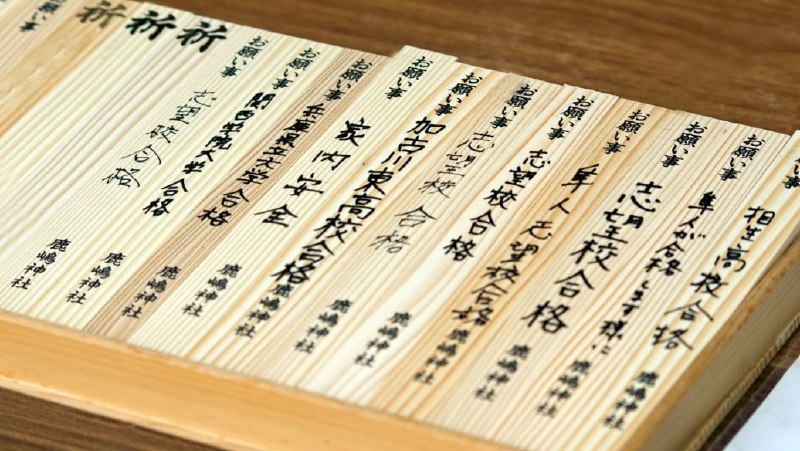 い事
お願い事 相生高校合格 鹿嶋神社
お願い事 隼人が合格します様に 鹿嶋神社
お願い事 志望校合格 鹿嶋神社
お願い事 隼人 志望校合格 鹿嶋神社
お願い事 志望校合格 鹿嶋神社
お願い事 志望校合格 鹿嶋神社
お願い事 加古川東高校合格 鹿嶋神社
お願い事 家内安全 鹿嶋神社
お願い事 兵庫県立大学合格 鹿嶋神社
お願い事 合格 鹿嶋神社
お願い事 志望校合格 鹿嶋神社
祈
祈
祈
お願い事